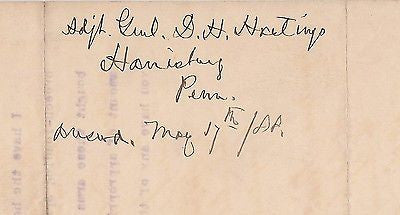 Adjt. Genl. D. H. Hastings
Harrisburg
Penn.
answd. May 17th/88.